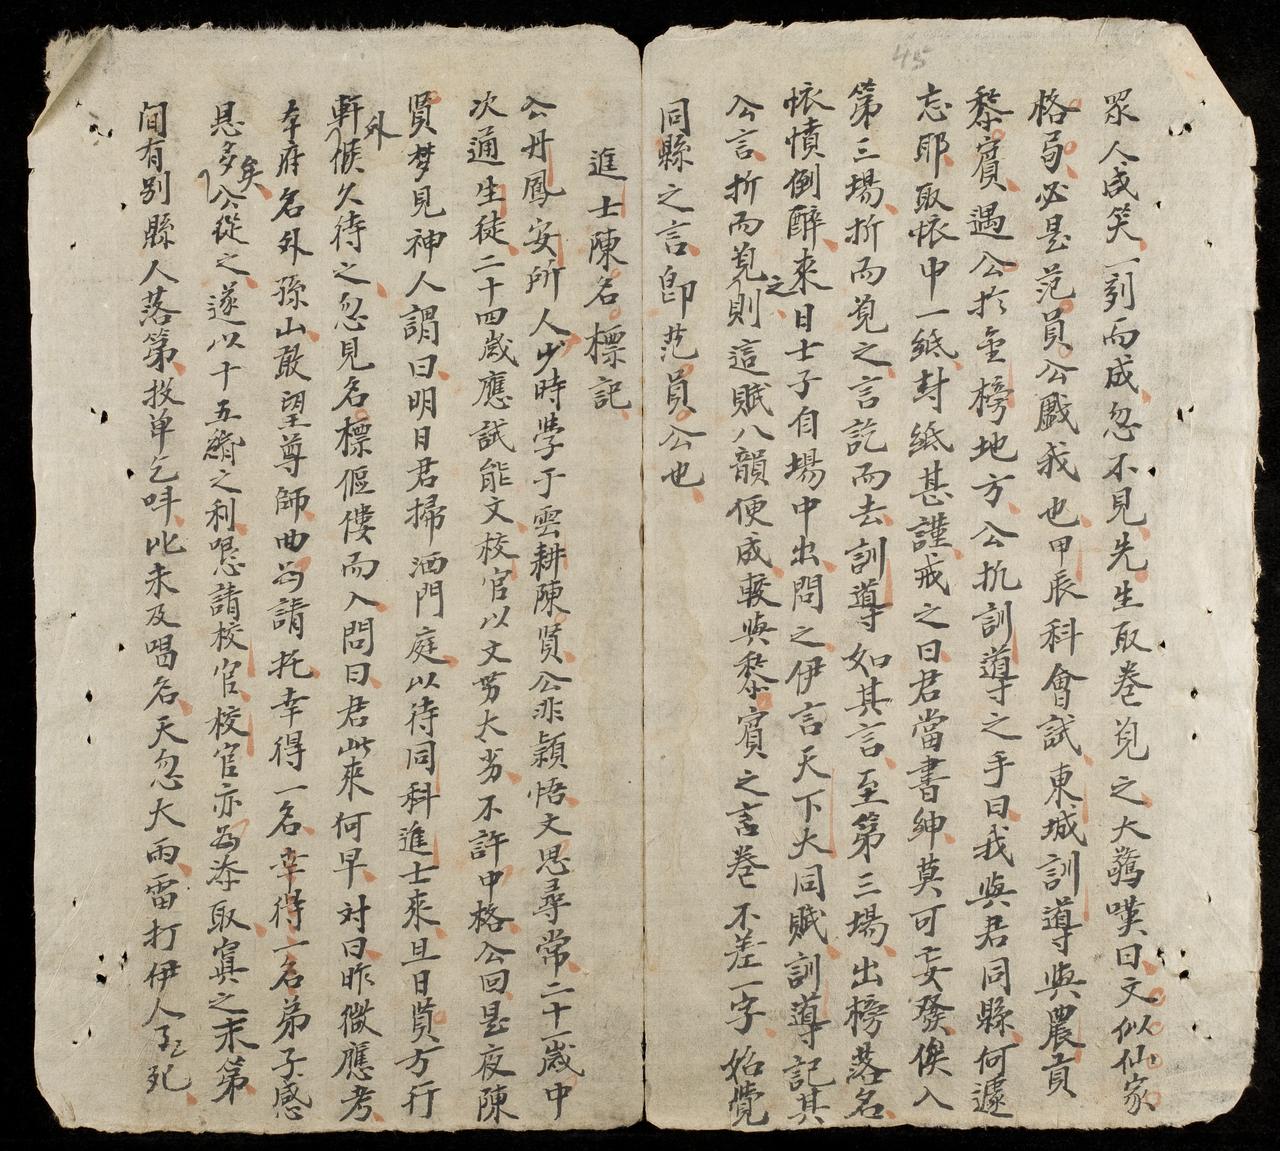 45
眾人成笑一刻而成忽不見先生取卷覓之大驚嘆曰文似仙家
格局必是范員公戲我也甲辰科會試東城訓導與農貢
黎賓遇公於金榜地方公抗訓導之手曰我與君同縣何遽
忘耶取帙中一紙封紙甚謹戒之曰君當書紳莫可妄發俟入
第三場折而覓之言訖而去訓導如其言至第三場出榜落名
帙憤倒醉來日士子自場中出問之伊言天下大同賦訓導記其
公言折而覓之則這賦八韻便成較與黎賓之言卷不差一字始覺
同縣之言卽范員公也
進士陳名標記
公丹鳳安所人少時學于雲耕陳賢公非穎悟文思尋常二十一歲中
次通生徒二十四歲應試能文校官以文劣太劣不許中格公回是夜陳
賢梦見神人謂曰明日君掃洒門庭以待同科進士來旦日賢方行
軒外候久待之忽見名標傴僂而入問曰君此來何早対曰昨僦應考
本府名外孫山敢望尊師曲為請托幸得一名幸得一名弟子感
恩多矣公從之遂以十五緡之利懇請校官校官亦為添取寘之末第
間有別縣人落第投单乞呌比未及唱名天忽大雨雷打伊人至死